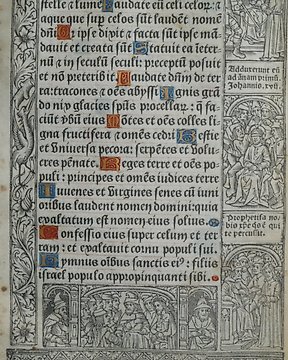 stellae & lumē Laudate eum celi celorū: &
aque que suꝑ celos sūt laudēt nomē
dñi: Qr ipse dixit & facta sūt ipse mā-
dauit et creata sūt Statuit ea in eter-
nū & in seculū seculi: preceptū posuit
et nō preteribit Laudate dñm de ter-
ra: tracones & oēs abyssi Ignis grā-
do nix glacies spūs procellar: q̄ fa-
ciūt v̄bū eius Mōtes et oēs colles li-
gna fructifera & omēs cedri Bestie
et vniuersa pecora: serpētes et volu-
cres pēnate. Reges terre et oēs po-
puli: principes et omēs iudices terre
Iuuenes et virgines senes cū iuni-
oribus laudent nomen domini: quia
exaltatum est nomen eius solius.
Confessio eius super celum et ter-
ram: et exaltauit cornu populi sui.
Hymnus oībus sanctis ei⁹: filiis
israel populo appropinquanti sibi.
Adduxerunt eū
ad ānam primū.
Johannis. xviii.
Prophetisa no-
bis xp̄e q̄s ē qui
te percussit.